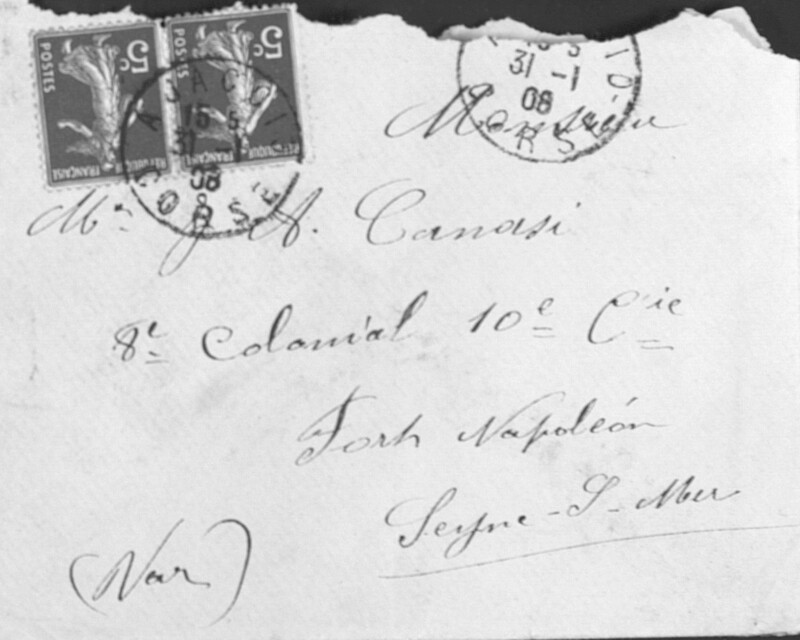 5c 5c
POSTES POSTES
RÉPUBLIQUE FRANÇAISE
AJACCIO
15 5
31 -1
08
CORSE
31 -1
08
CORSE
Monsieur
Mr J. A. Canasi
8e Colonial 10e Cie
Fort Napoléon
Seyne-S-Mer
(Var)